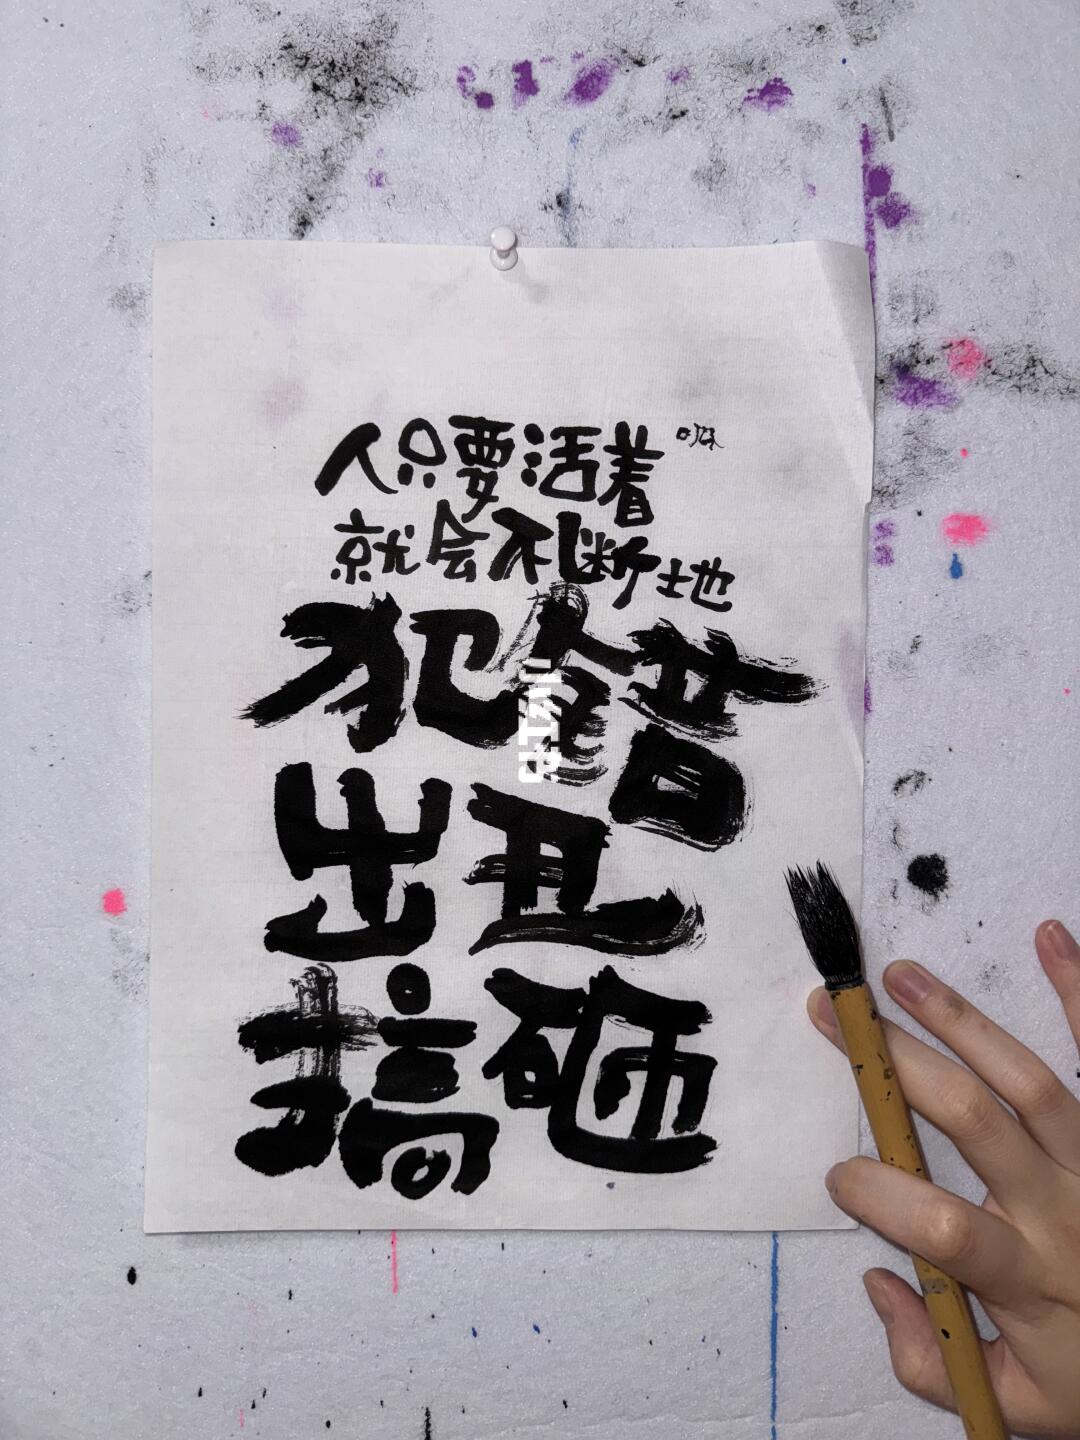 人只要活着呀
就会不断地
犯错
出丑
搞砸
小红书